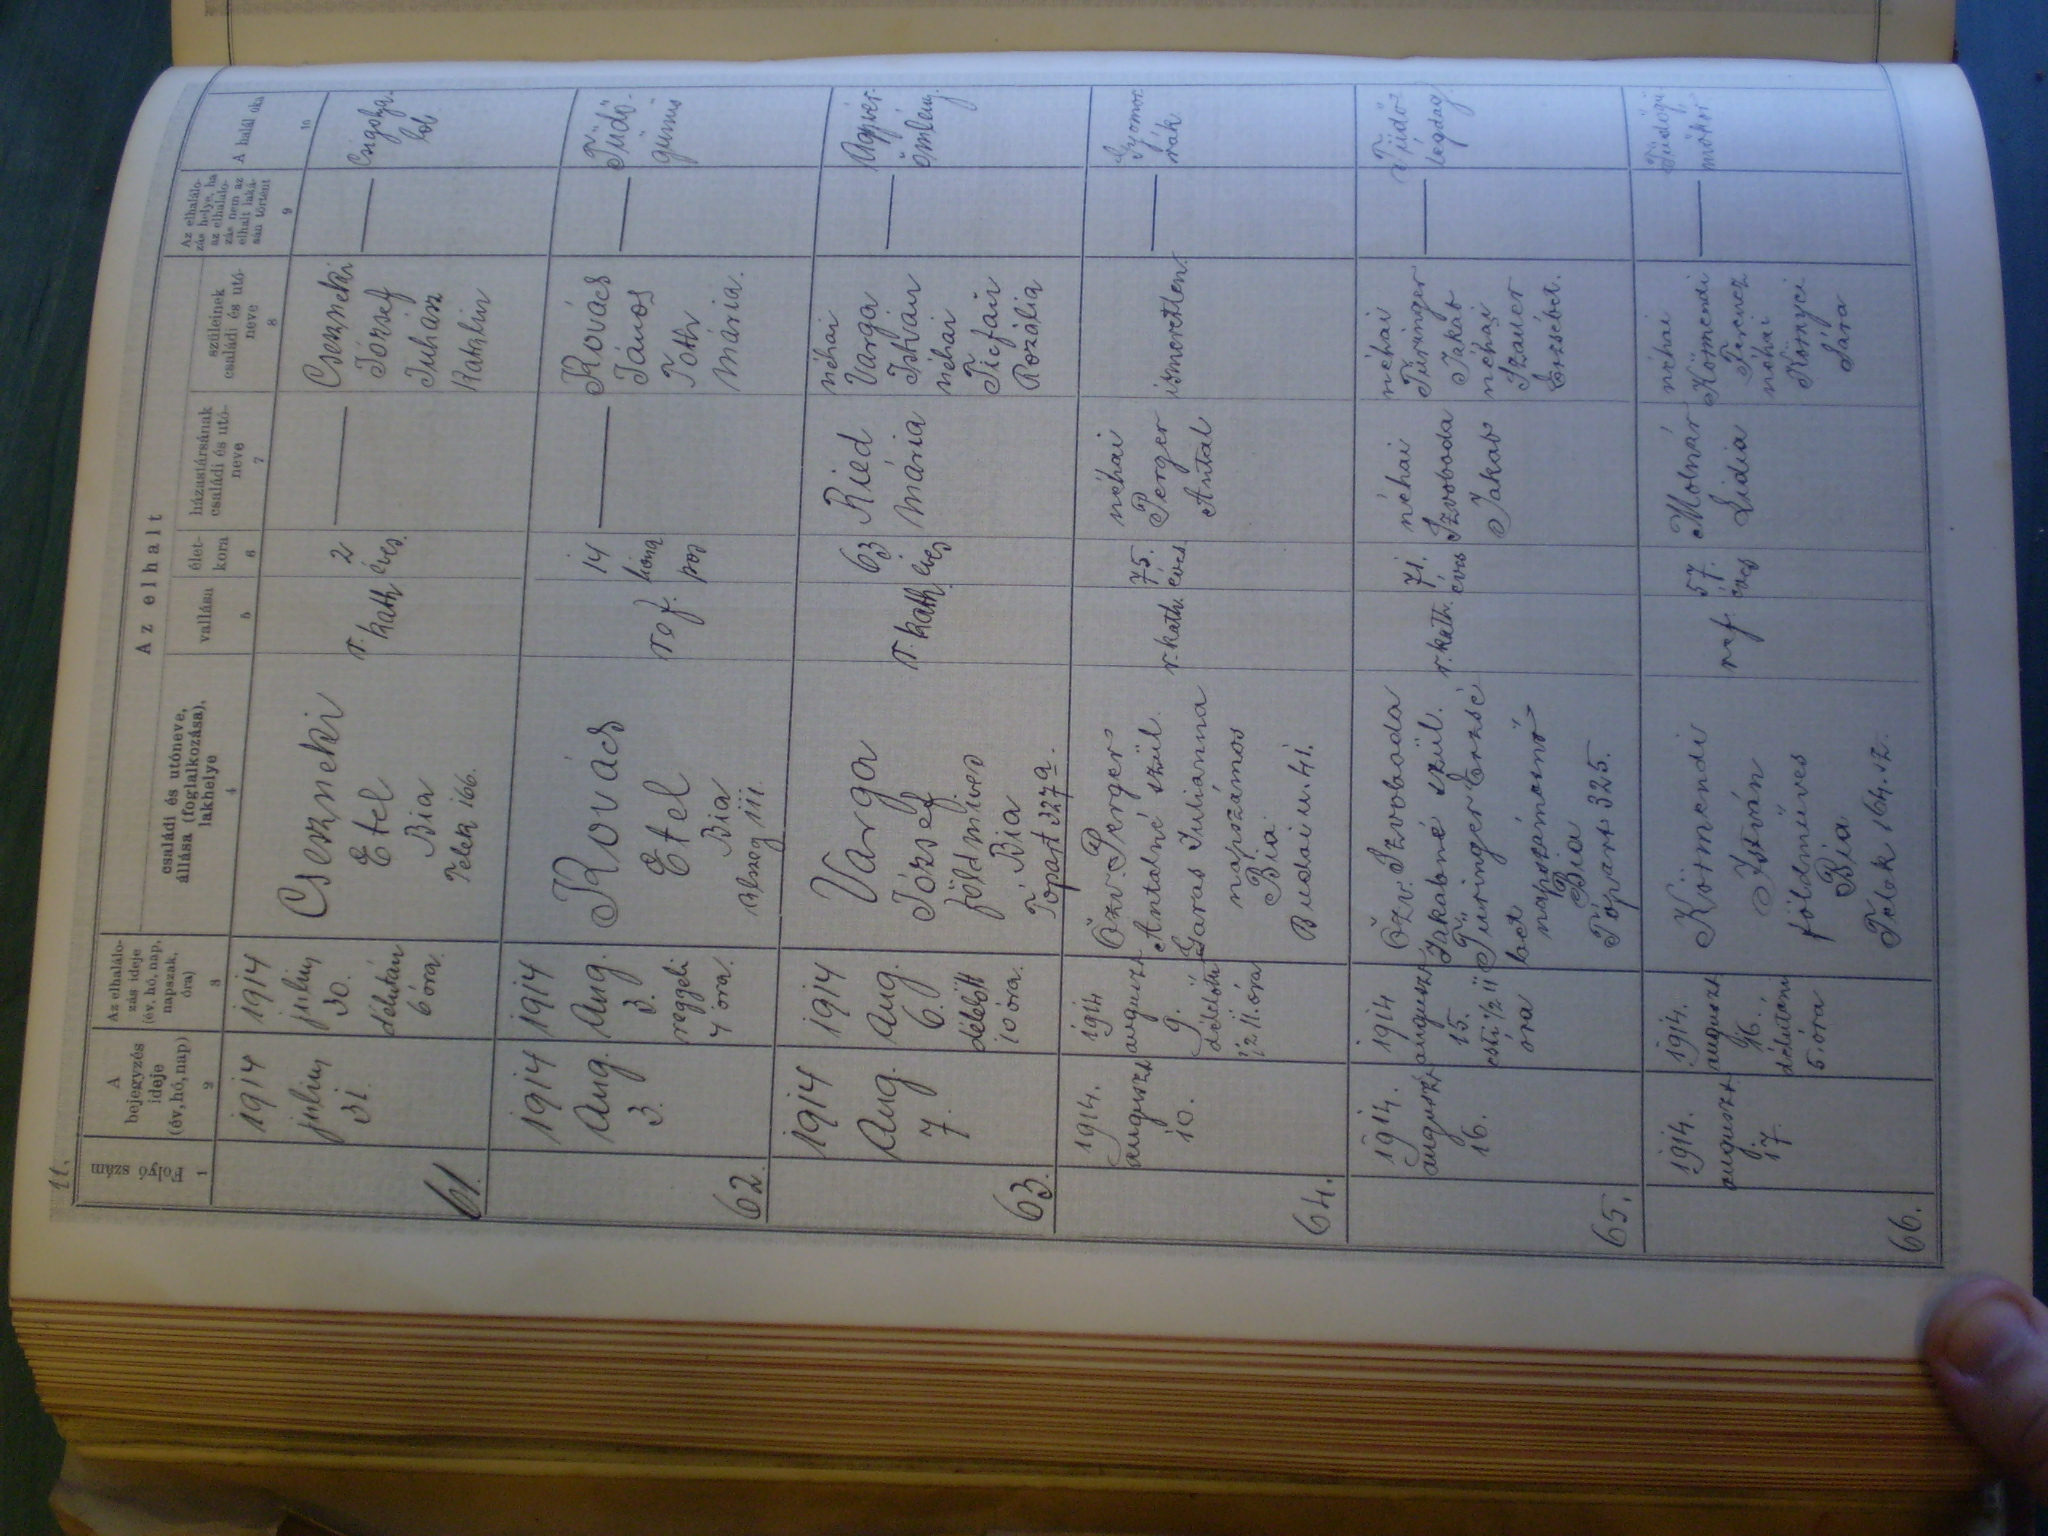 11.
Folyó
szám
1
A
bejegyzés
ideje
(év, hó, nap)
2
Az elhalálo-
zás ideje
(év, hó, nap,
napszak,
óra)
3
Az elhalt
családi és utóneve,
állása (foglalkozása),
lakhelye
4
vallása
5
élet-
kora
6
házastársának
családi és utó-
neve
7
szüleinek
családi és utó-
neve
8
Az elhalálo-
zás helye, ha
az elhalálo-
zás nem az
elhalt laká-
sán történt
9
A halál oka
10
61.
1914
julius
31.
1914
julius
30.
délután
6 óra.
Cseszneki
Etel
Bia
Telek 166.
r. kath
2
éves.
Cseszneki
József
Juhász
Katalin
62.
1914
Aug.
3.
1914
Aug.
3.
reggeli
4 óra.
Kovács
Etel
Bia
Alszeg 111.
ref.
14
hóna
pos
Kovács
János
Tóth
Mária.
Tüdő-
gümő
63.
1914
Aug.
7.
1914
Aug.
6.
délelőtt
10 óra.
Varga
József
földmíves
Bia
Tópart 327 a.
r. kath.
63
éves
Ried
Mária
néhai
Varga
István
néhai
Rozália
Agyvér-
ömleny.
64.
1914.
auguszt.
10.
1914
auguszt.
9.
délelőtt
½ 11. óra
Özv. Perger
Antalné szül.
Garas Julianna
napszámos
Bia
Budai u. 41.
r. kath.
75.
éves
néhai
Perger
Antal
ismeretlen.
Gyomor
rák
65.
1914.
auguszt.
16.
1914
auguszt.
15.
esti ½ 11
óra
Özv. Szvoboda
Jakabné szül.
Türinger Erzsé
bet
napszámosnő
Bia
Tópart 325.
r. kath.
71.
éves
néhai
Szvoboda
Jakab
néhai
Türinger
Jakab
néhai
Erzsébet.
Tüdő
légdag.
66.
1914.
auguszt.
17.
1914.
auguszt.
16.
délutáni
5. óra
Körmendi
István
földműves
Bia
Telek 164. sz.
ref.
57.
éves
Molnár
Lidia
néhai
Körmendi
Ferencz
néhai
Környei
Sára
Tüdőgü
mőkór